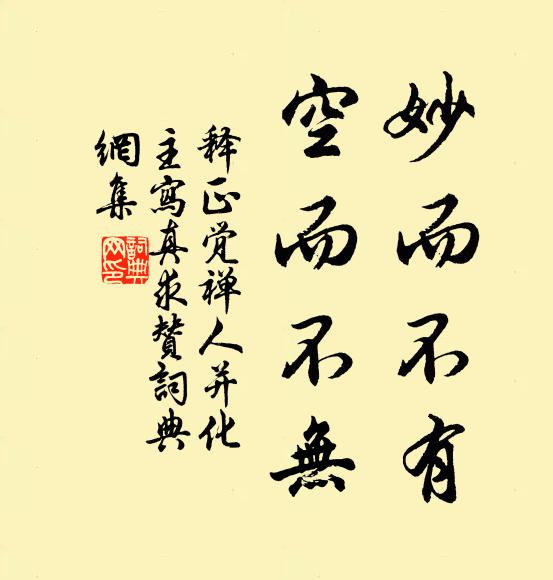 妙而不有
空而不無
释正觉禅人并化
主寫真求贊詞典
網集
詞典网印